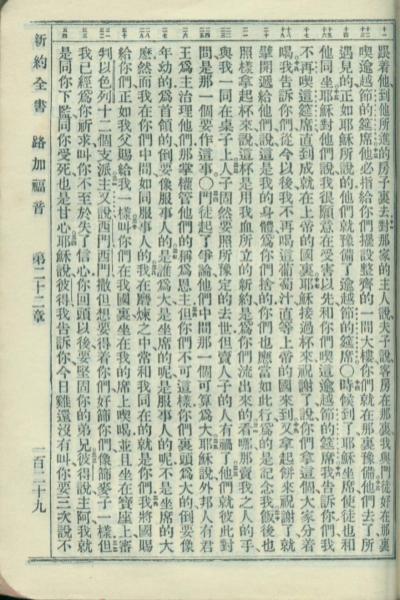 跟着他到他所進的房子裏去對那家的主人說夫子說客房在那裏我與門徒好在那裏
喫逾越節的筵席他必指給你們擺設整齊的一間大樓你們就在那裏豫備他們去了所
遇見的正如耶穌所說的他們就豫備了逾越節的筵席〇時候到了耶穌坐席使徒也和
他同坐耶穌對他們說我很願意在受害以先和你們喫這逾越節的筵席我告訴你們我
不再喫這筵席直到成就在上帝的國裏耶穌接過杯來祝謝了說你們拿這個大家分着
喝我告訴你們從今以後我不再喝這葡萄汁直等上帝的國來到又拿起餅來祝謝了就
擘開遞給他們說這是我的身體爲你們捨的你們也應當如此行爲的是記念我飯後也
照樣拿起杯來說這杯是用我血所立的新約是爲你們流出來的看哪那賣我之人的手
與我一同在桌子上人子固然要照所豫定的去世但賣人子的人有禍了他們就彼此對
問是那一個要作這事〇門徒起了爭論他們中間那一個可算爲大耶穌說外邦人有君
王爲主治理他們那掌權管他們的稱爲恩主但你們不可這樣你們裏頭爲大的倒要像
年幼的爲首領的倒要像服事人的是誰爲大是坐席的呢是服事人的呢不是坐席的大
麽然而我在你們中間如同服事人的我在磨煉之中常和我同在的就是你們我將國賜
給你們正如我父賜給我一樣叫你們在我國裏坐在我的席上喫喝並且坐在寶座上審
判以色列十二個支派主又說西門西門撒但想要得着你們好篩你們像篩麥子一樣但
我已經爲你祈求叫你不至於失了信心你回頭以後要堅固你的弟兄彼得說主阿我就
是同你下監同你受死也是甘心耶穌說彼得我告訴你今日雞還沒有叫你要三次說不
新約全書 路加福音 第二十二章 一百二十九